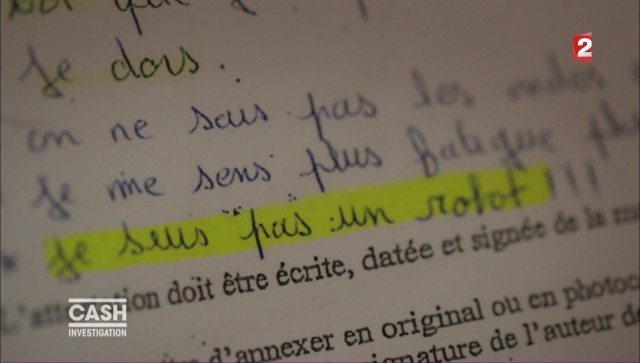 je dors.
on ne sais pas les
je me sens plus fatigue
je suis pas un robot !!!
L'attestation doit être écrite, datée et signée de la
d'annexer en original ou en photoc
signature de l'auteur de
2
CASH
INVESTIGATION